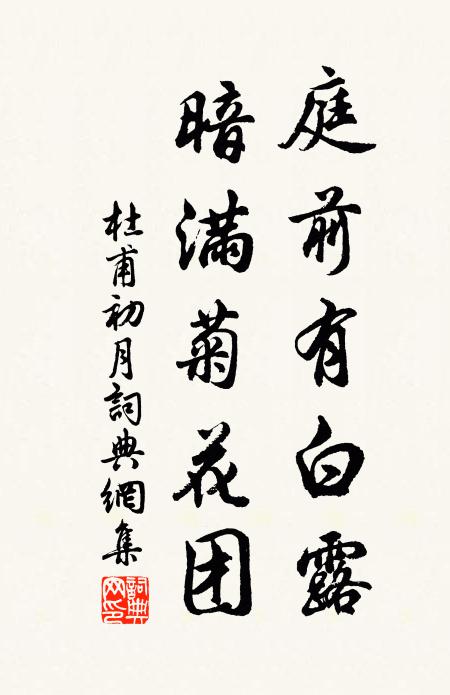 庭前有白露
暗满菊花团
杜甫初月詞典網集
詞典网印